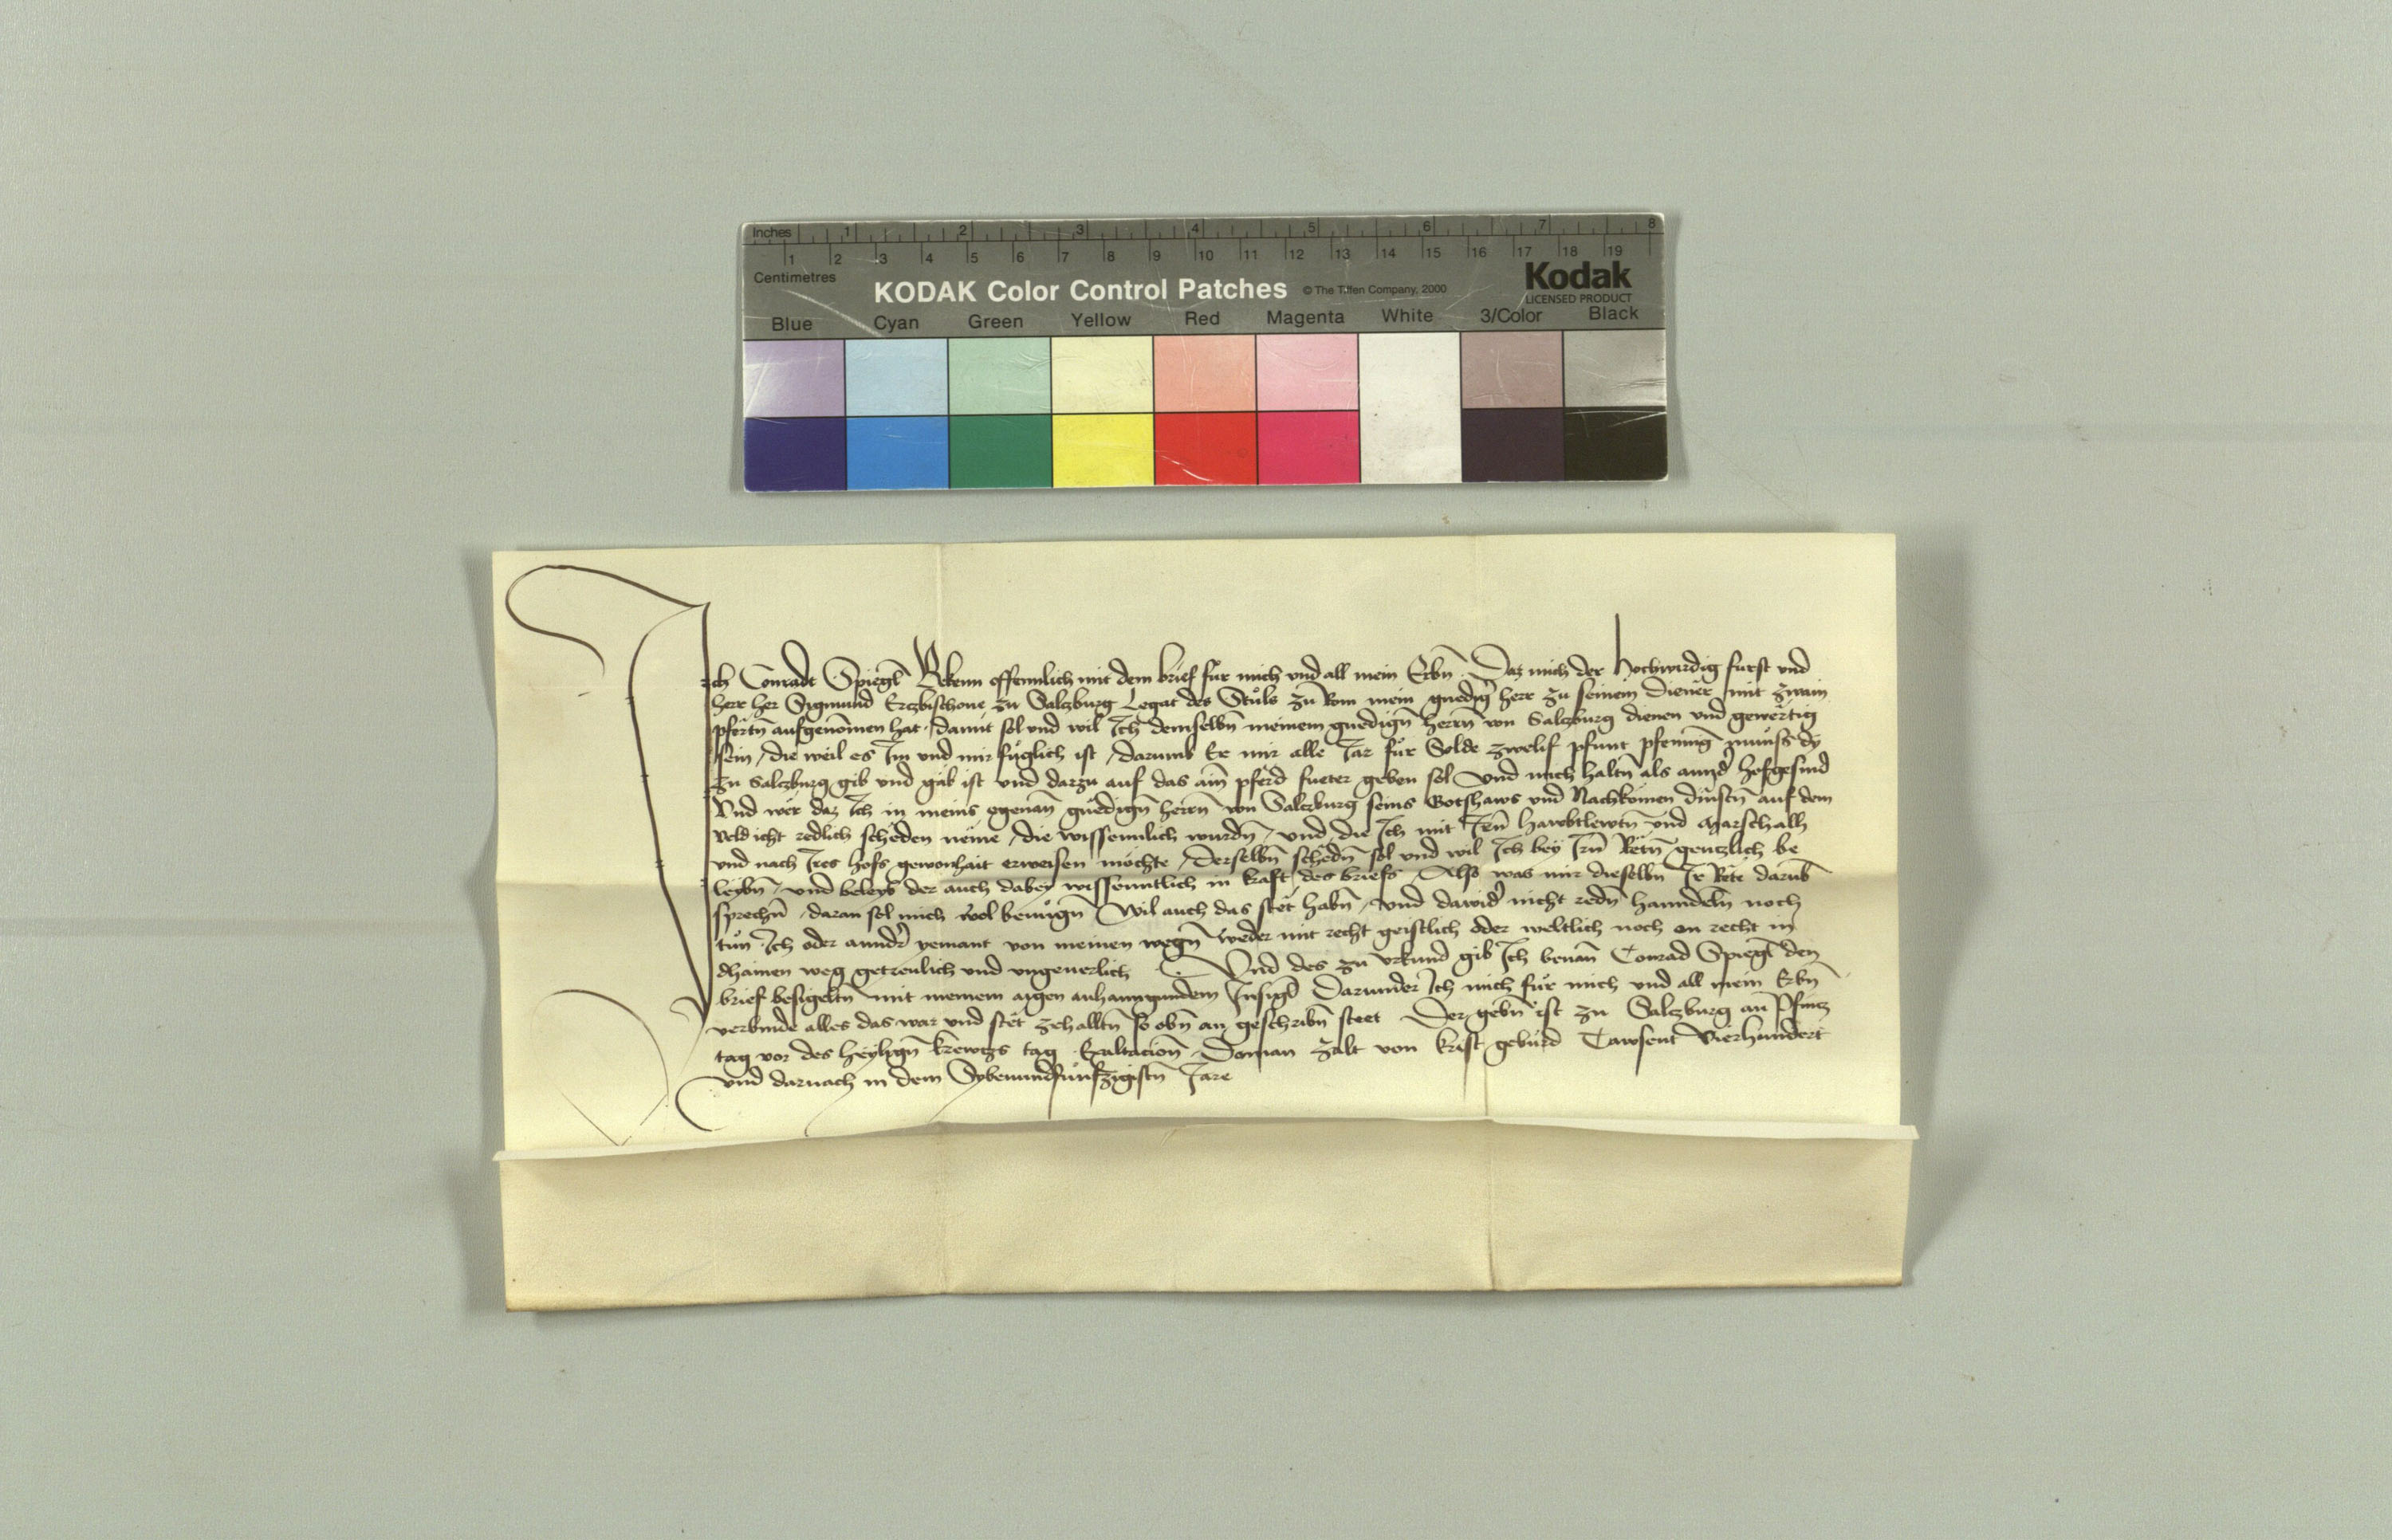 Inches 1 2 3 4 5 6 7 8
1 2 3 4 5 6 7 8 9 10 11 12 13 14 15 16 17 18 19
Centimetres
KODAK Color Control Patches © The Tiffen Company, 2000 Kodak
LICENSED PRODUCT
Blue Cyan Green Yellow Red Magenta White 3/Color Black
Ich Conradt Spiegl̄ Bekenn offennlich mit dem brief fu̇r mich vnd all mein Erbn̄ Daz mich der hochwirdig furst vnd
herr her Sigmund Erczbischoue zu Salczburg Legat des Stůls zu Rom mein gnedig̉ herr zu seinem diener mit zwain
pfertn̄ aufgenōmen hat / damit sol vnd wil Ich demselbn̄ meinem gnedign̄ herrn̄ von Salczburg dienen vnd gewërtig
sein / die weil es Im vnd mir fůglich ist / darumb Er mir alle Jar fůr Solde zwelif pfunt pfeninḡ mu̇nss dy
zu Salczburg gib vnd gäb ist vnd darzu auf das ain̄ pfërd fueter geben sol vnd mich haltn̄ als annd̉ hofgesind
Vnd wër daz Ich in meins egenan̄ gnëdign̄ herrn̄ von Salczburg seins Gotshaws vnd Nachkōmen dinstn̄ auf dem
veld icht redlich schëden nëme / die wissennlich wurdn̄ / vnd die Ich mit Irn̄ hawbtlewtn̄ vnd Marschalh
vnd nach Irs hofs gewonhait erweisen mo̊chte / derselbn̄ schëdn̄ sol vnd wil Ich bey Irn̄ Rëtn̄ genczlich be
leybn̄ / vnd beleyb der auch dabey wissenntlich in kraft des briefs / Also was mir dieselbn̄ Ir Rëte darūb
sprechn̄ / daran sol mich wol benu̇gn̄ Wil auch das stët habn̄ / vnd dawid̉ nicht redn̄ hanndeln̄ noch
tůn Ich oder annd̉r yemant von meinen wegn̄ weder mit recht geistlich oder weltlich noch on recht in
dhainen weg getreulich vnd vngeuerlich Vnd des zu vrkund gib Ich benan̄ Conrad Spiegl̄ den
brief besigeltn̄ mit meinem aigen anhanngundem Insigl̄ Darunder Ich mich fůr mich vnd all mein Erbn̄
verbinde alles das war vnd stët zehalltn̄ so obn̄ an geschribn̄ steet Der gebn̄ ist zu Salczburg an Pfincz
tag vor des heylign̄ krewczs tag Exaltacion̄ Do man zalt von Krist gebůrd Tawsent Vierhundert
vnd darnach in dem Sybenundfu̇nfzigistn̄ Jare